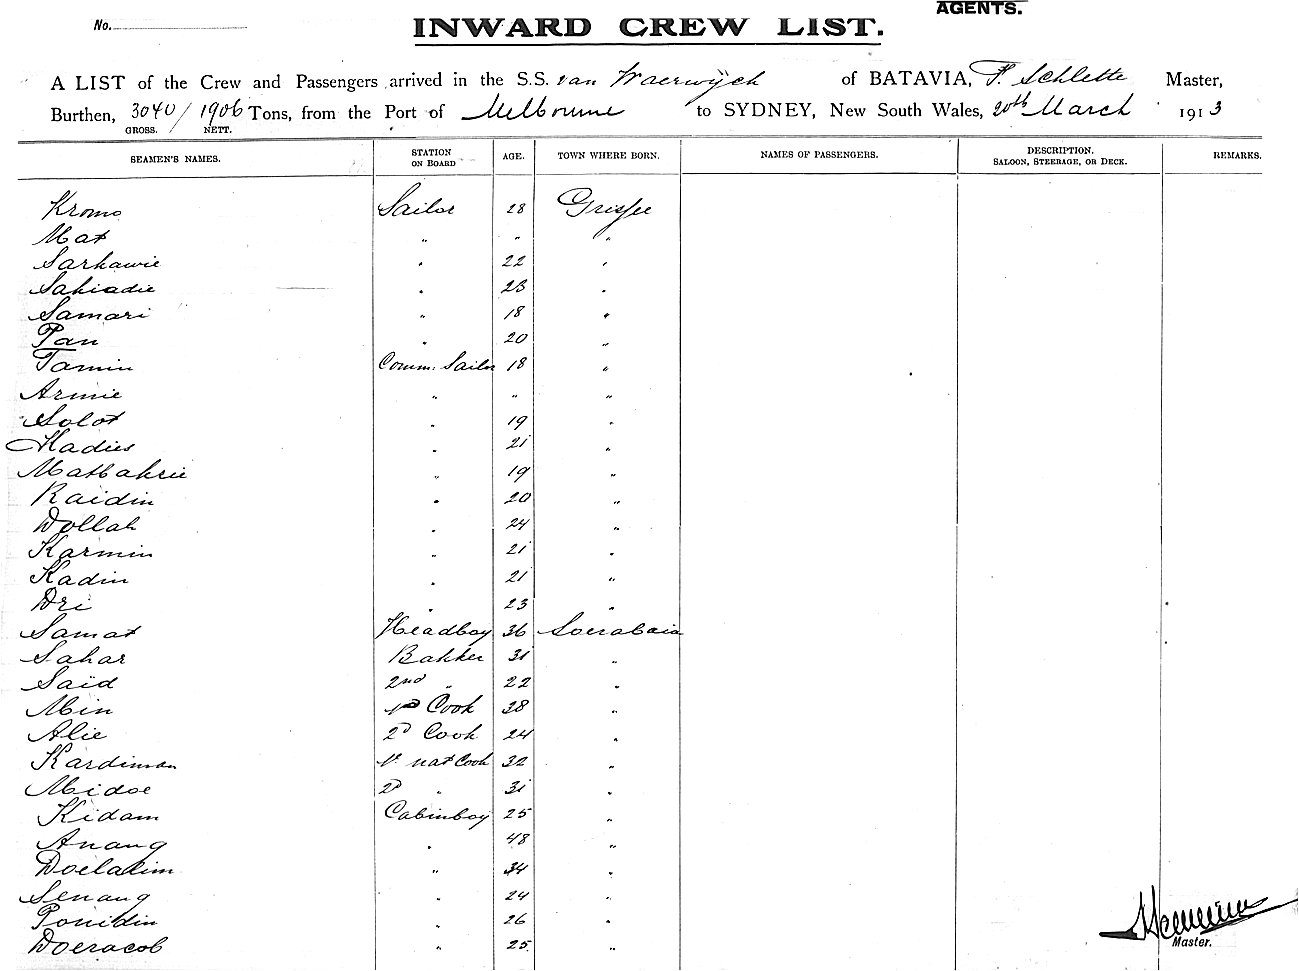 AGENTS.
No.
INWARD CREW LIST.
A LIST of the Crew and Passengers arrived in the S.S. van Waerwijck of BATAVIA, F. Schlette Master,
Burthen, 3040 / 1906 Tons, from the Port of Melbourne to SYDNEY, New South Wales, 20th March 1913
GROSS. NETT.
SEAMEN'S NAMES. STATION ON BOARD AGE. TOWN WHERE BORN. NAMES OF PASSENGERS. DESCRIPTION. SALOON, STEERAGE, OR DECK. REMARKS.
Kromo Sailor 28 Grissee
Mat " " "
Sarkawie " 22 "
Sakiadie " 23 "
Samari " 18 "
Pan " 20 "
Tamin Comm. Sailor 18 "
Armie " " "
Solot " 19 "
Kadies " 21 "
Matbakrie " 19 "
Raidin " 20 "
Dollah " 24 "
Karmin " 21 "
Kadin " 21 "
Dri " 23 "
Samat Headboy 36 Soerabaia
Sahar Bakker 31 "
Saïd 2nd " 22 "
Min 1e Cook 38 "
Alie 2d Cook 24 "
Kardiman 1e nat Cook 32 "
Midoe 2d " 31 "
Kidam Cabinboy 25 "
Anang " 48 "
Doelakim " 34 "
Senang " 24 "
Ponidin " 26 "
Doeracob " 25 "
Master.